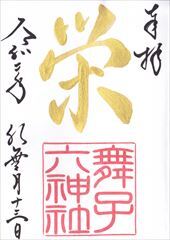 奉拝
栄
舞子
六神社
令和二年
神無月十三日